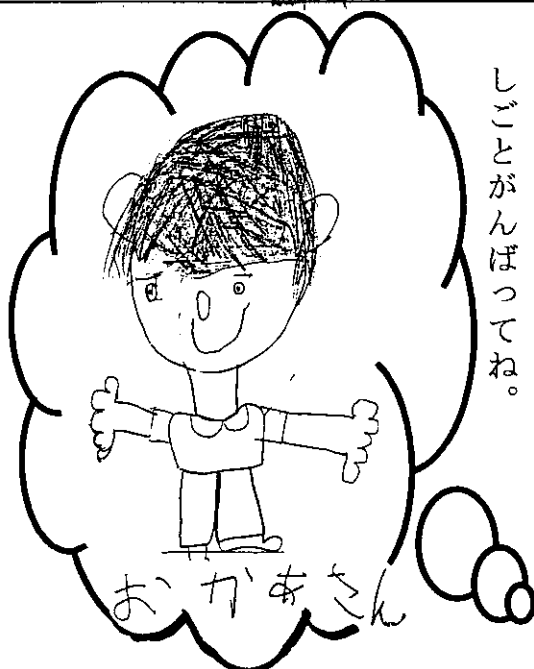 しごとがんばってね。
おかあさん